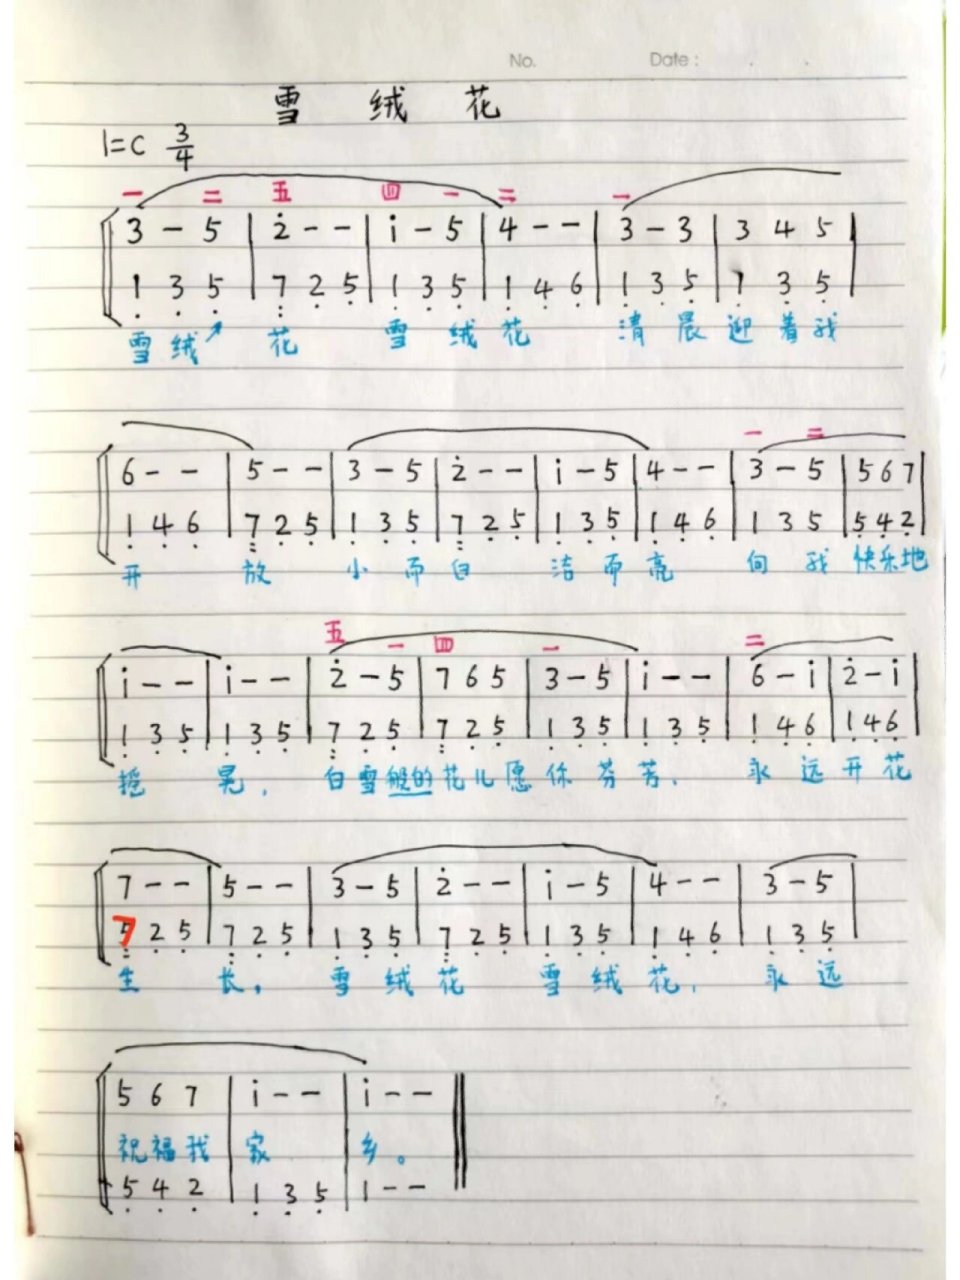 No. Date :
雪 绒 花
1=C 3/4
一 二 五 四 一 二 一
3 - 5 | 2̇ - - | i - 5 | 4 - - | 3 - 3 | 3 4 5 |
1̣ 3̣ 5̣ | 7̣̣ 2̣ 5̣ | 1̣ 3̣ 5̣ | 1̣ 4̣ 6̣ | 1̣ 3̣ 5̣ | 1̣ 3̣ 5̣ |
雪 绒 ↗ 花 雪 绒 花 清 晨 迎 着 我
一 二
6 - - | 5 - - | 3 - 5 | 2̇ - - | i - 5 | 4 - - | 3 - 5 | 5 6 7 |
1̣ 4̣ 6̣ | 7̣̣ 2̣ 5̣ | 1̣ 3̣ 5̣ | 7̣̣ 2̣ 5̣ | 1̣ 3̣ 5̣ | 1̣ 4̣ 6̣ | 1̣ 3̣ 5̣ | 5̣ 4̣ 2̣ |
开 放 小 而 白 洁 而 亮 向 我 快乐地
五 一 四 一 二
i - - | i - - | 2̇ - 5 | 7 6 5 | 3 - 5 | i - - | 6 - i | 2̇ - i |
1̣ 3̣ 5̣ | 1̣ 3̣ 5̣ | 7̣̣ 2̣ 5̣ | 7̣̣ 2̣ 5̣ | 1̣ 3̣ 5̣ | 1̣ 3̣ 5̣ | 1̣ 4̣ 6̣ | 1̣ 4̣ 6̣ |
摇 晃, 白雪般的花儿愿你芬芳, 永远开花
7 - - | 5 - - | 3 - 5 | 2̇ - - | i - 5 | 4 - - | 3 - 5 |
7̣̣ 2̣ 5̣ | 7̣̣ 2̣ 5̣ | 1̣ 3̣ 5̣ | 7̣̣ 2̣ 5̣ | 1̣ 3̣ 5̣ | 1̣ 4̣ 6̣ | 1̣ 3̣ 5̣ |
生 长, 雪 绒 花 雪 绒 花, 永 远
5 6 7 | i - - | i - - ||
祝福我 家 乡。
5̣ 4̣ 2̣ | 1̣ 3̣ 5̣ | 1 - - ||